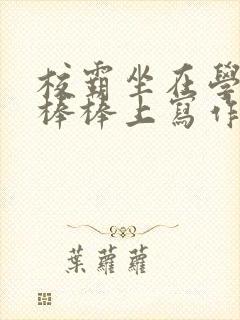 校霸坐在學
棒棒上寫作
葉蘿蘿